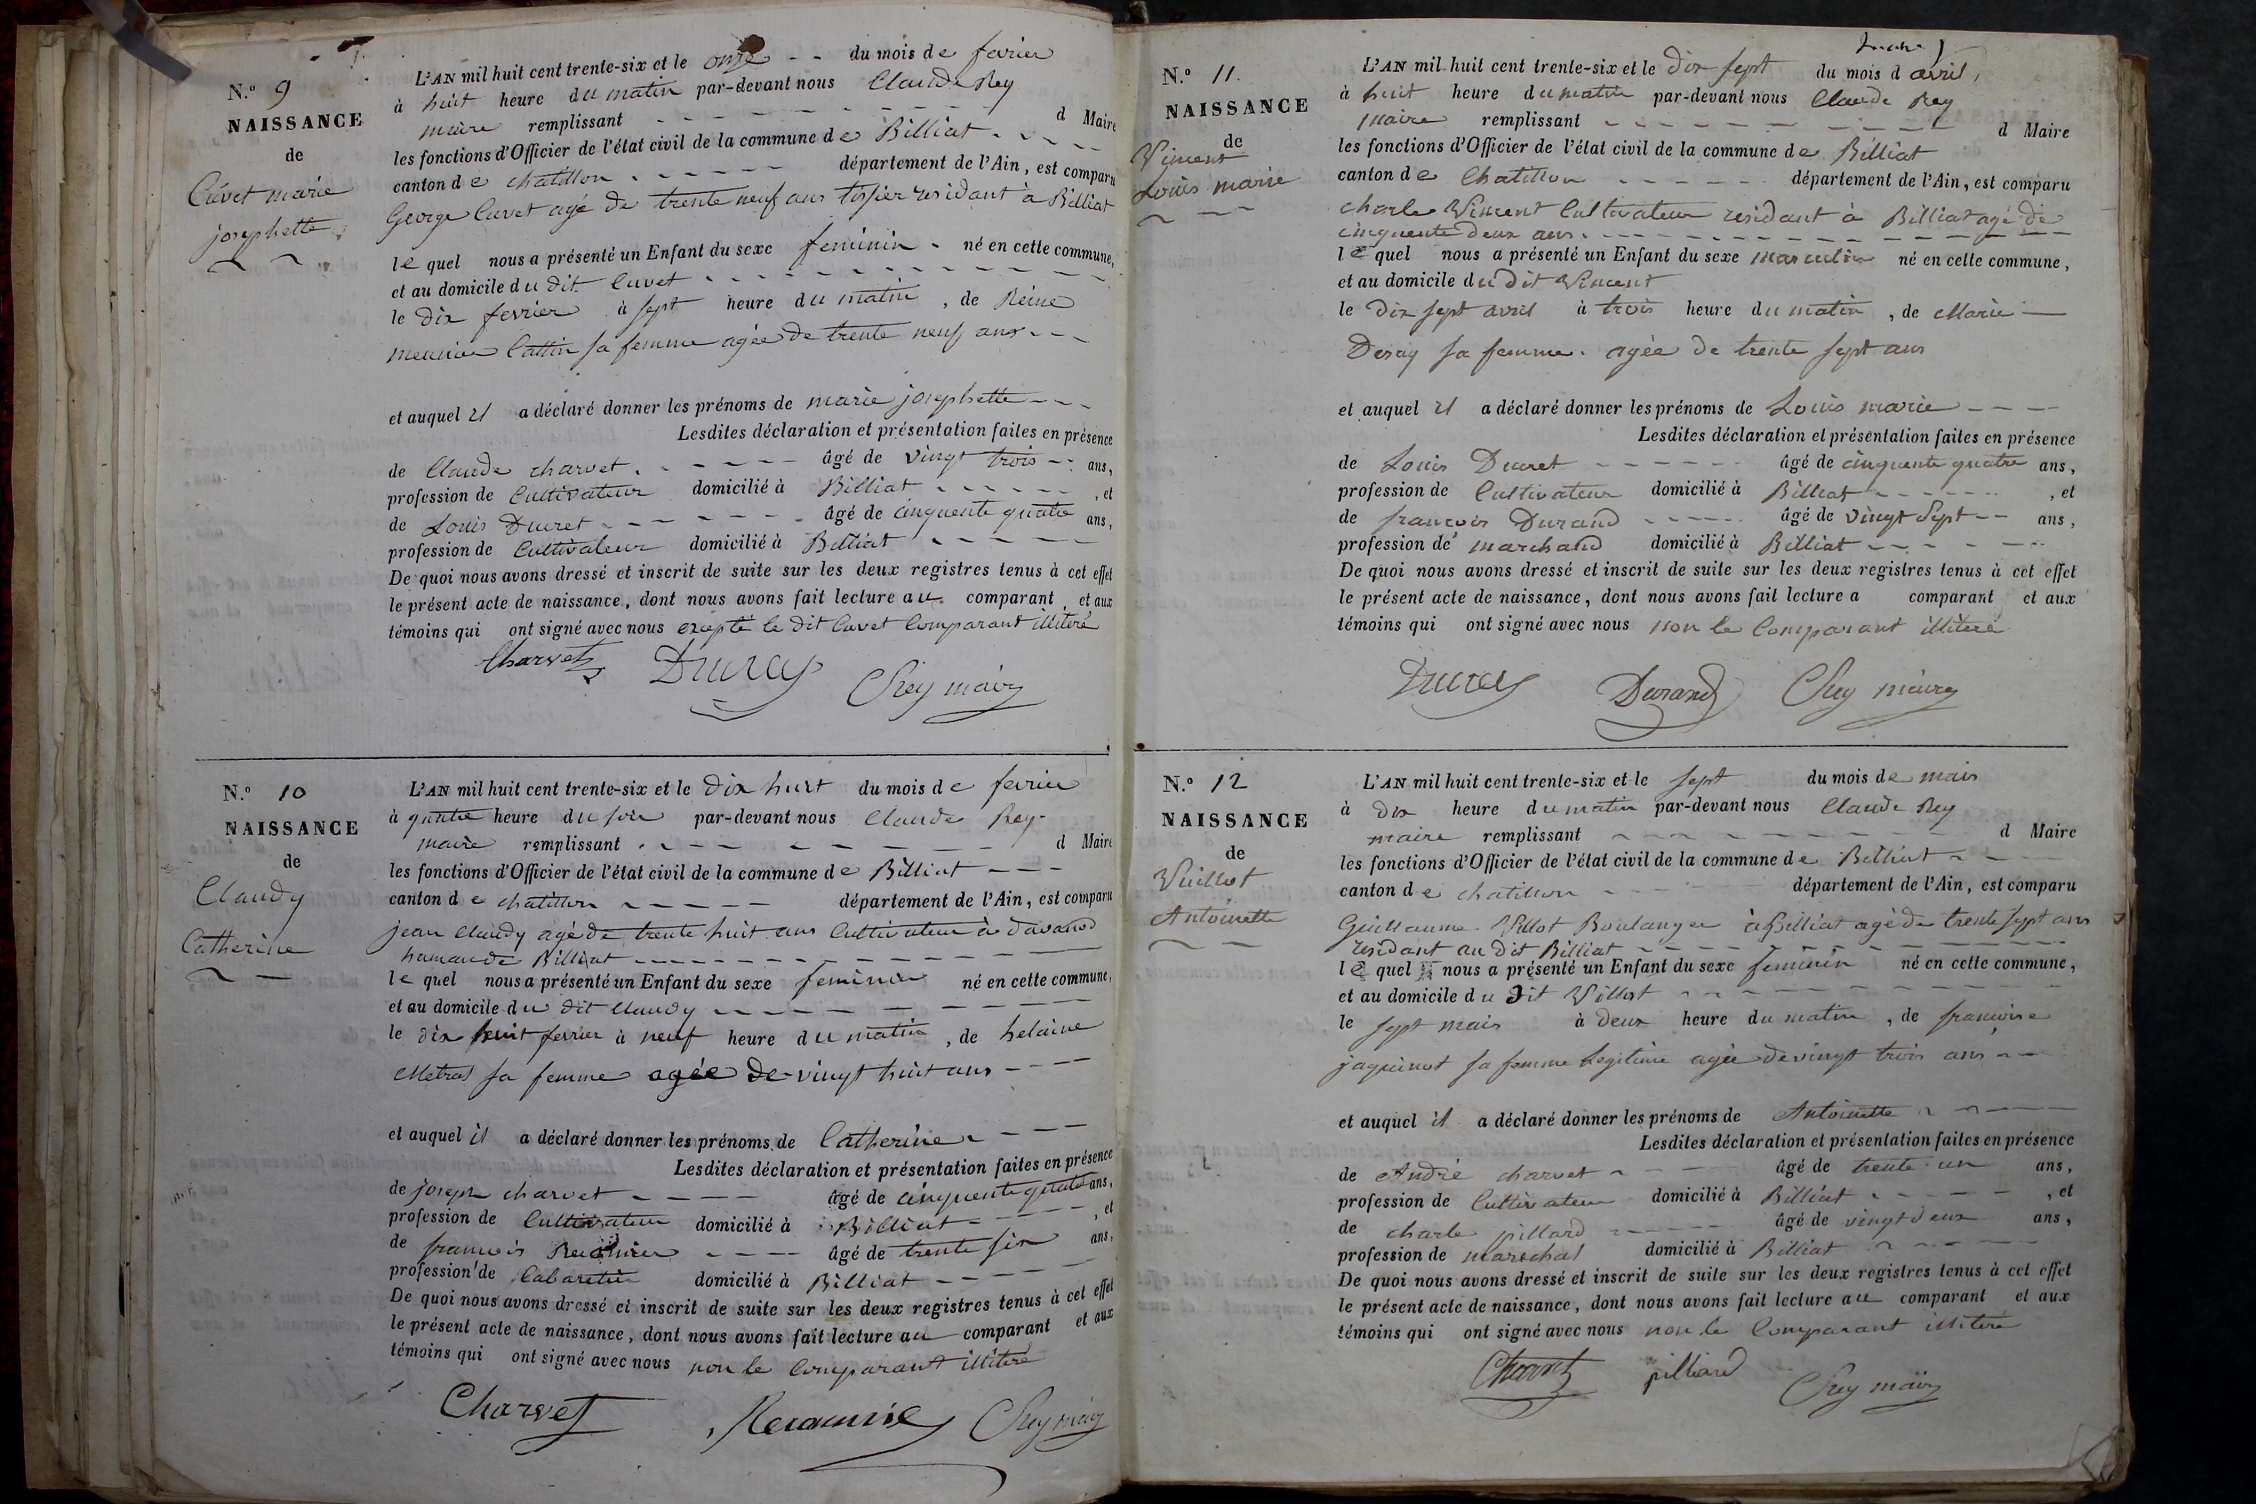 N.° 9
NAISSANCE
de
Cuvet marie
josephette
L'AN mil huit cent trente-six et le onze du mois de fevrier
à huit heure du matin par-devant nous Claude Rey
maire remplissant d Maire
les fonctions d'Officier de l'état civil de la commune de Billiat
canton de chatillon département de l'Ain, est comparu
George Cuvet agé de trente neuf ans residant à Billiat
le quel nous a présenté un Enfant du sexe feminin né en cette commune,
et au domicile du dit Cuvet
le dix fevrier à sept heure du matin, de Reine
Cattin sa femme agée de trente neuf ans
et auquel il a déclaré donner les prénoms de marie josephette
Lesdites déclaration et présentation faites en présence
de Claude charvet âgé de vingt trois ans,
profession de Cultivateur domicilié à Billiat, et
de Louis Ducret âgé de cinquente quatre ans,
profession de Cultivateur domicilié à Billiat
De quoi nous avons dressé et inscrit de suite sur les deux registres tenus à cet effet
le présent acte de naissance, dont nous avons fait lecture au comparant et aux
témoins qui ont signé avec nous excepté le dit Cuvet Comparant illiteré
Charvet Ducret CRey maire
N.° 10
NAISSANCE
de
Claudy
Catherine
L'AN mil huit cent trente-six et le dix huit du mois de fevrier
à quatre heure du soir par-devant nous Claude Rey
maire remplissant d Maire
les fonctions d'Officier de l'état civil de la commune de Billiat
canton de chatillon département de l'Ain, est comparu
jean Claudy agé de trente huit ans Cultivateur à davanod
hamau de Billiat
le quel nous a présenté un Enfant du sexe feminin né en cette commune,
et au domicile du dit Claudy
le dix huit fevrier à neuf heure du matin, de helaine
Metral sa femme agée de vingt huit ans
et auquel il a déclaré donner les prénoms de Catherine
Lesdites déclaration et présentation faites en présence
de joseph charvet âgé de cinquente quatre ans,
profession de Cultivateur domicilié à Billiat, et
de francois âgé de trente six ans,
profession de Cabaretier domicilié à Billiat
De quoi nous avons dressé et inscrit de suite sur les deux registres tenus à cet effet
le présent acte de naissance, dont nous avons fait lecture au comparant et aux
témoins qui ont signé avec nous non le Comparant illiteré
Charvet CRey maire
N.° 11
NAISSANCE
de
Vincent
Louis marie
L'AN mil huit cent trente-six et le dix sept du mois d avril,
à huit heure du matin par-devant nous Claude Rey
maire remplissant d Maire
les fonctions d'Officier de l'état civil de la commune de Billiat
canton de Chatillon département de l'Ain, est comparu
charle Vincent Cultivateur residant à Billiat agé de
cinquente deux ans
le quel nous a présenté un Enfant du sexe masculin né en cette commune,
et au domicile du dit Vincent
le dix sept avril à trois heure du matin, de Marie
sa femme agée de trente sept ans
et auquel il a déclaré donner les prénoms de Louis marie
Lesdites déclaration et présentation faites en présence
de Louis Ducret âgé de cinquente quatre ans,
profession de Cultivateur domicilié à Billiat, et
de francois Durand âgé de vingt Sept ans,
profession de marchand domicilié à Billiat
De quoi nous avons dressé et inscrit de suite sur les deux registres tenus à cet effet
le présent acte de naissance, dont nous avons fait lecture a comparant et aux
témoins qui ont signé avec nous non le Comparant illiteré
Ducret Durand CRey maire
N.° 12
NAISSANCE
de
Vuillot
Antoinette
L'AN mil huit cent trente-six et le sept du mois de mais
à dix heure du matin par-devant nous Claude Rey
maire remplissant d Maire
les fonctions d'Officier de l'état civil de la commune de Billiat
canton de chatillon département de l'Ain, est comparu
Guillaume Villot Boulanger à Billiat agé de trente sept ans
residant au dit Billiat
le quel nous a présenté un Enfant du sexe feminin né en cette commune,
et au domicile du dit Villot
le sept mais à deux heure du matin, de francoise
jaquinot sa femme Legitime agée de vingt trois ans
et auquel il a déclaré donner les prénoms de Antoinette
Lesdites déclaration et présentation faites en présence
de André charvet âgé de trente un ans,
profession de Cultivateur domicilié à Billiat, et
de charle pillard âgé de vingt deux ans,
profession de marechal domicilié à Billiat
De quoi nous avons dressé et inscrit de suite sur les deux registres tenus à cet effet
le présent acte de naissance, dont nous avons fait lecture au comparant et aux
témoins qui ont signé avec nous non le Comparant illiteré
Charvet pilliard CRey maire